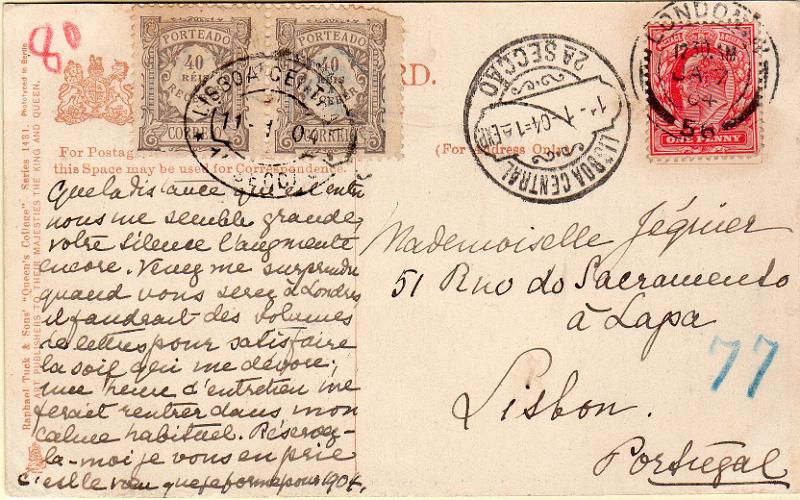 80
PORTEADO
40
RÉIS
RECEBER
CORREIO
PORTEADO
40
RÉIS
RECEBER
CORREIO
LISBOA CENTRAL
11 - 1 - 04
SECÇÃO
CARD.
2A SECÇÃO
1ª - 1 - 04 =
LISBOA CENTRAL
LONDON
12.10 AM
JA 7
04
56
ONE PENNY
For Postage
this Space may be used for Correspondence.
(For Address Only)
Raphael Tuck & Sons' "Queen's College" Series 1431. Photographed in Berlin
ART PUBLISHERS TO THEIR MAJESTIES THE KING AND QUEEN.
Que la distance qui est entre
nous me semble grande,
votre silence l'augmente
encore. Venez me surprendre
quand vous serez à Londres
il faudrait des volumes
de lettres pour satisfaire
la soif qui me dévore;
une heure d'entretien me
ferait rentrer dans mon
calme habituel. Réservez-
la-moi je vous en prie
C'est le vœu que je forme pour 1904.
Mademoiselle Jéquier
51 Rua do Sacramento
à Lapa
77
Lisbon.
Portugal